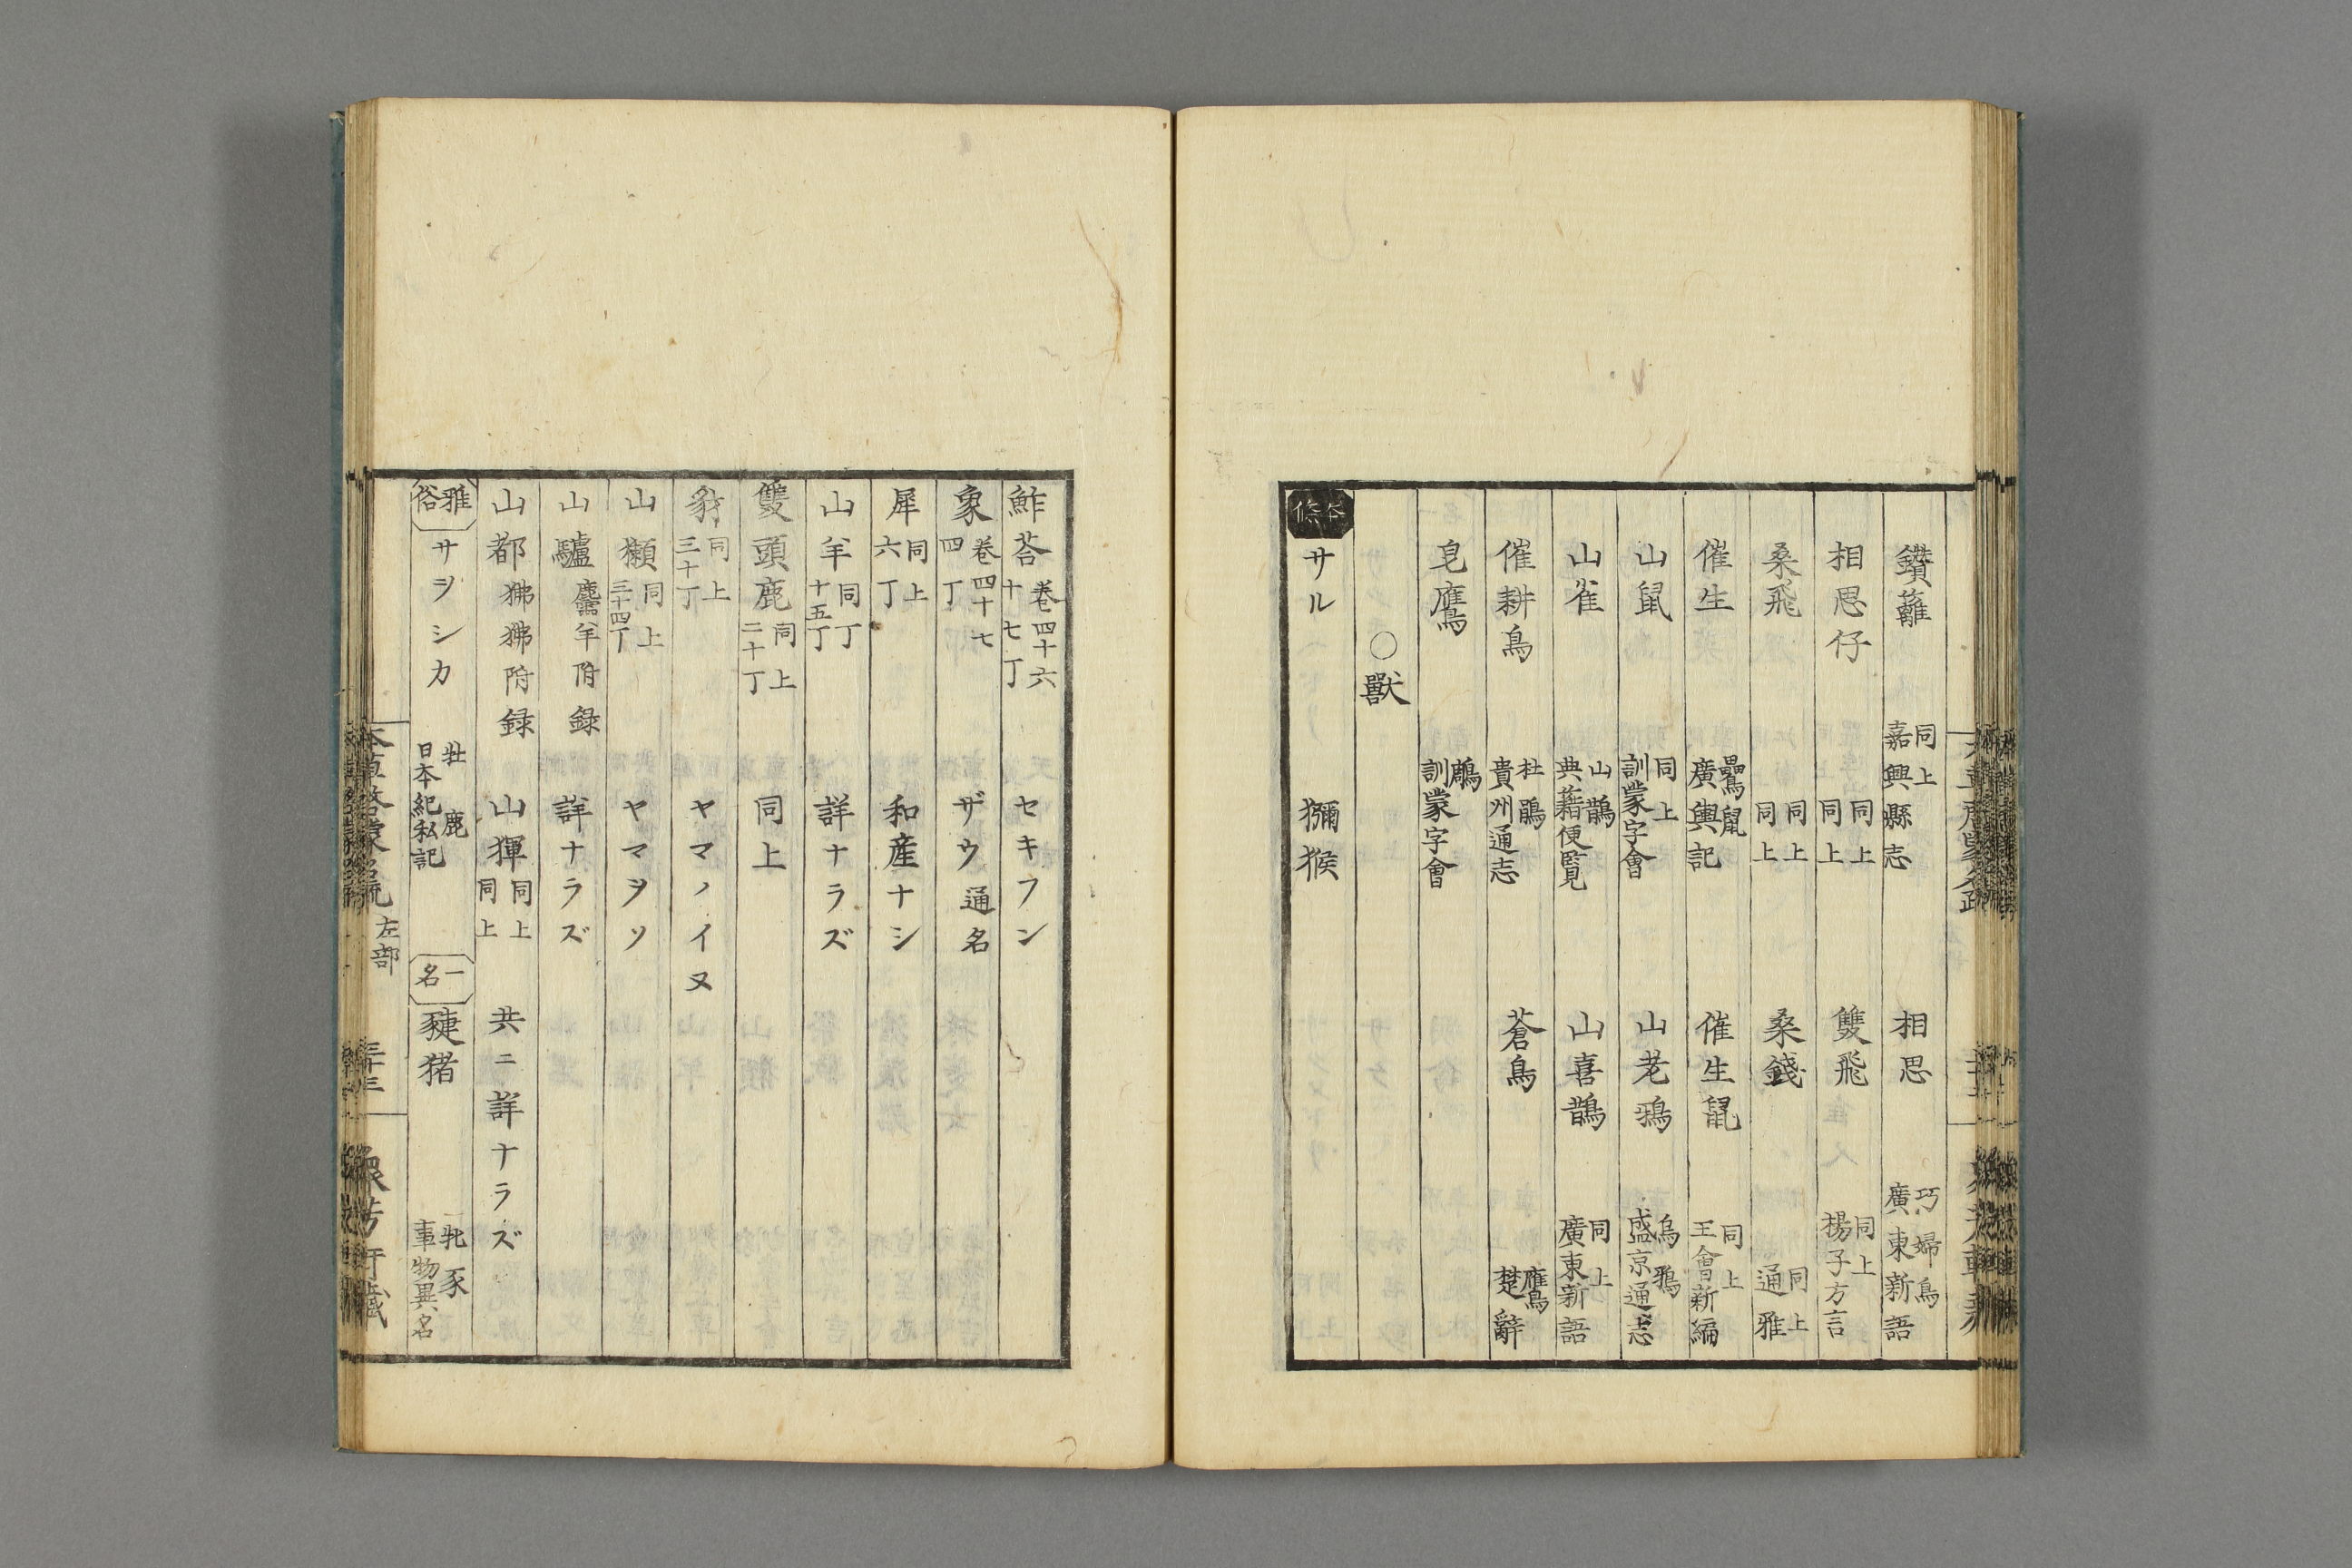 鑽蘺 同上 嘉興縣志 相思 巧婦鳥 廣東新語
相思仔 同上 同上 雙飛 同上 楊子方言
桑飛 同上 同上 桑錢 同上 通雅
催生 鸓鼠 廣輿記 催生鼠 同上 王會新編
山鼠 同上 訓蒙字會 山老鴉 烏鴉 盛京通志
山雀 山鵲 典藉便覧 山喜鵲 同上 廣東新語
催耕鳥 杜鵑 貴州通志 蒼鳥 鷹 楚辭
皂鷹 鵰 訓蒙字會
○獸
本條 サル 獼猴
鮓荅 巻四十六 十七丁 セキフン
象 巻四十七 四丁 ザウ通名
犀 同上 六丁 和産ナシ
山羊 同丁 十五丁 詳ナラズ
雙頭鹿 同上 二十丁 同上
豺 同上 三十丁 ヤマノイヌ
山獺 同上 三十四丁 ヤマヲソ
山驢 麢羊附録 詳ナラズ
山都 狒狒附録 山㺑 同上 同上 共ニ詳ナラズ
雅俗 サヲシカ 牡鹿 日本紀私記 一名 豬 牝豕 事物異名
本草啓蒙名疏 左部 三十三 衆芳軒藏